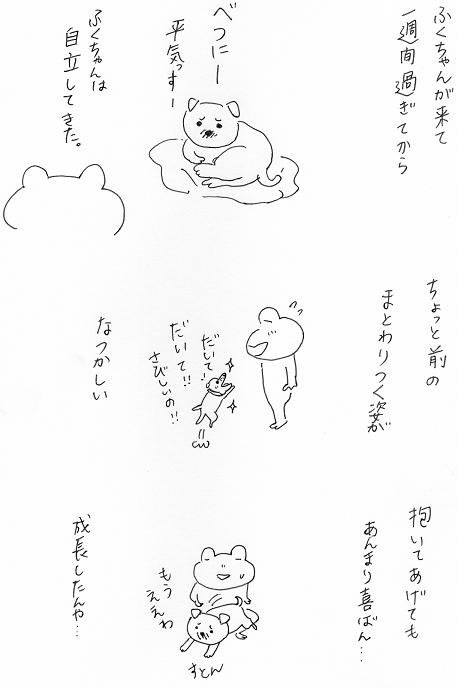 ふくちゃんが来て
一週間過ぎてから
べつにー
平気っすー
ふくちゃんは
自立してきた。
ちょっと前の
まとわりつく姿が
だいて！
だいて!!
さびしいの!!
なつかしい
抱いてあげても
あんまり喜ばん…
もう
ええわ
すとん
成長したんや…